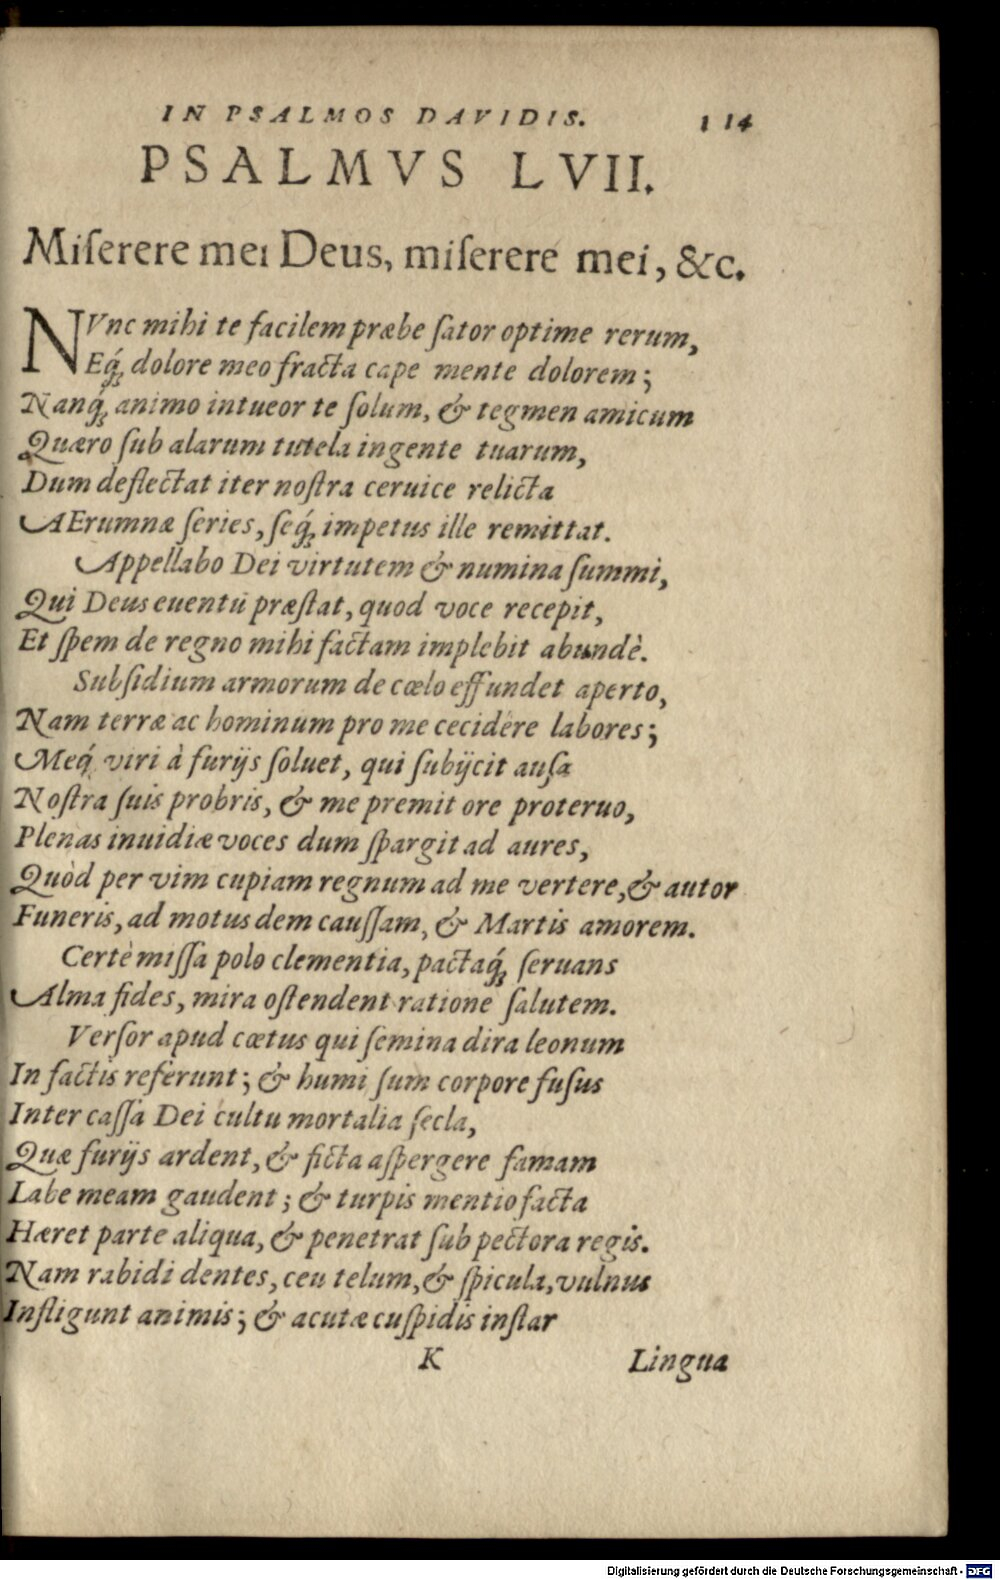 IN PSALMOS DAVIDIS. 114
PSALMVS LVII.
Miſerere mei Deus, miſerere mei, &c.
NVnc mihi te facilem præbe ſator optime rerum,
Eq́ꝫ dolore meo fracta cape mente dolorem;
Nanq́ꝫ animo intueor te ſolum, & tegmen amicum
Quæro ſub alarum tutela ingente tuarum,
Dum deflectat iter noſtra ceruice relicta
AErumnæ ſeries, ſeq́ꝫ impetus ille remittat.
Appellabo Dei virtutem & numina ſummi,
Qui Deus euentū præſtat, quod voce recepit,
Et ſpem de regno mihi factam implebit abundè.
Subſidium armorum de cœlo effundet aperto,
Nam terræ ac hominum pro me cecidêre labores;
Meq́ꝫ viri à furijs ſoluet, qui ſubijcit auſa
Noſtra ſuis probris, & me premit ore proteruo,
Plenas inuidiæ voces dum ſpargit ad aures,
Quòd per vim cupiam regnum ad me vertere, & autor
Funeris, ad motus dem cauſſam, & Martis amorem.
Certè miſſa polo clementia, pactaq́ꝫ ſeruans
Alma fides, mira oſtendent ratione ſalutem.
Verſor apud cœtus qui ſemina dira leonum
In factis referunt; & humi ſum corpore fuſus
Inter caſſa Dei cultu mortalia ſecla,
Quæ furijs ardent, & ficta aſpergere famam
Labe meam gaudent; & turpis mentio facta
Hæret parte aliqua, & penetrat ſub pectora regis.
Nam rabidi dentes, ceu telum, & ſpicula, vulnus
Infligunt animis; & acutæ cuſpidis inſtar
K Lingua
Digitalisierung gefördert durch die Deutsche Forschungsgemeinschaft - DFG